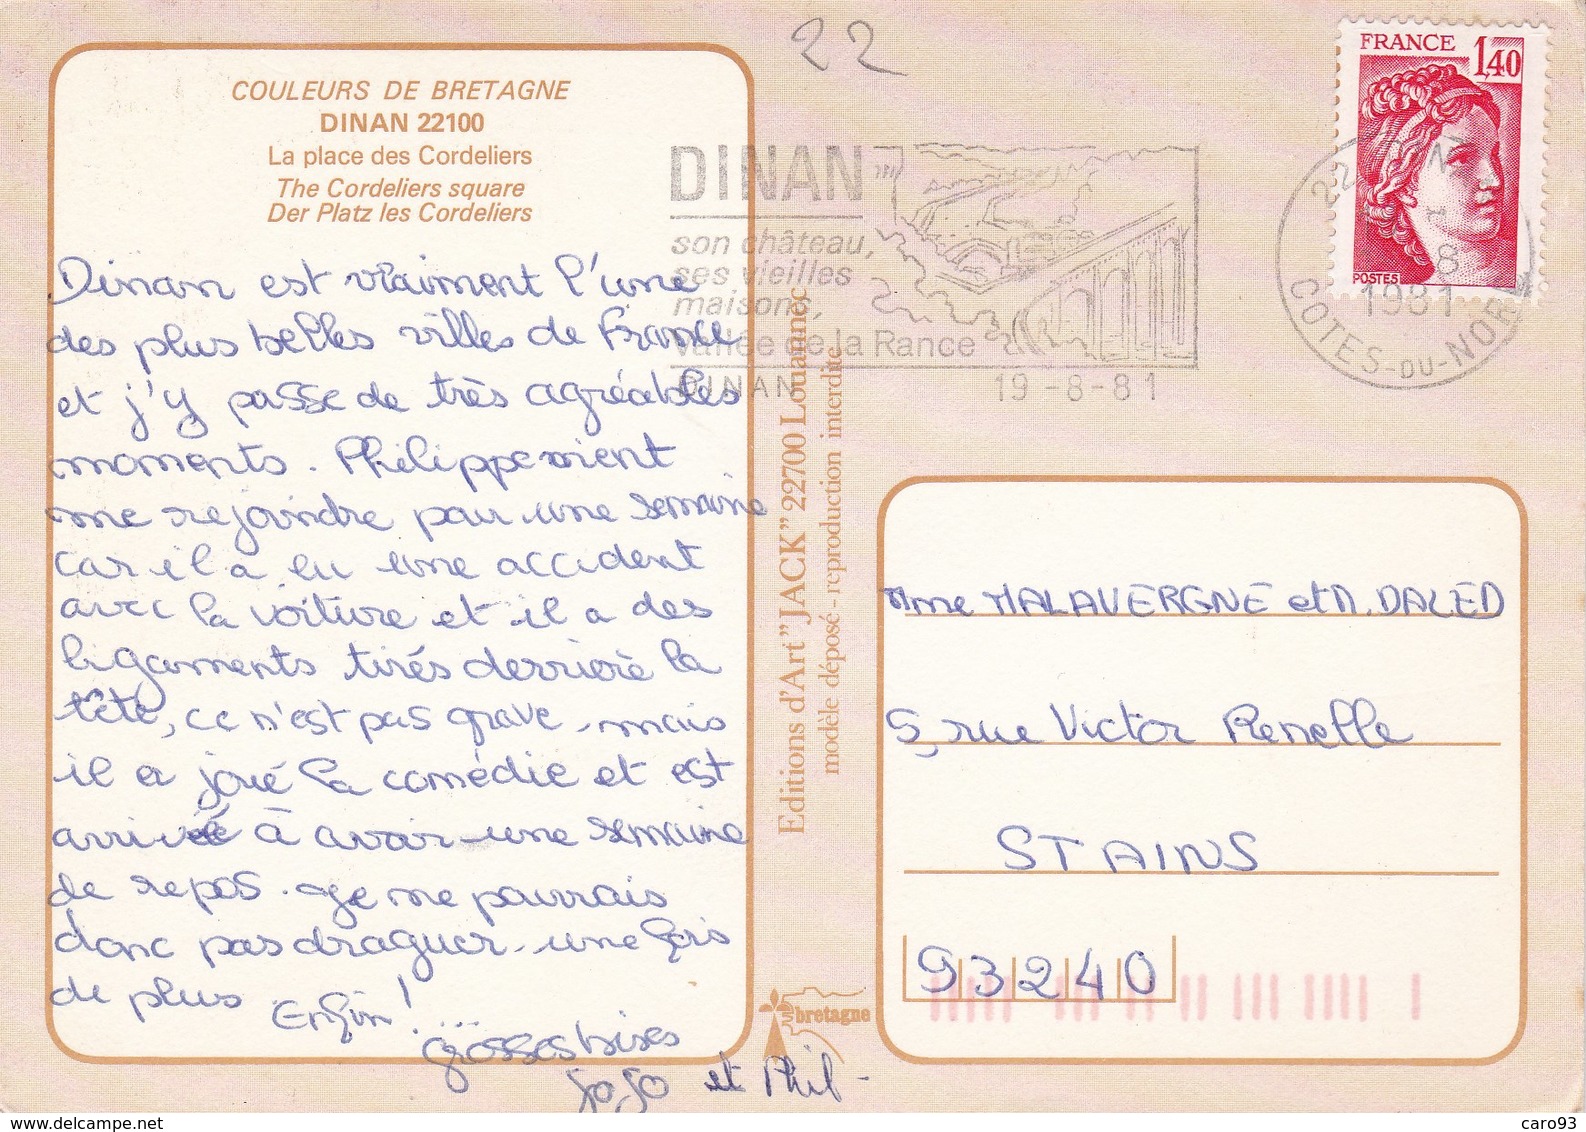 22
COULEURS DE BRETAGNE
DINAN 22100
La place des Cordeliers
The Cordeliers square
Der Platz les Cordeliers
Dinan est vraiment l'une
des plus belles villes de France
et j'y passe de très agréables
moments. Philippe vient
me rejoindre pour une semaine
car il a eu une accident
avec la voiture et il a des
ligaments tirés derrière la
tête, ce n'est pas grave, mais
il a joué la comédie et est
arrivé à avoir une semaine
de repos. Je ne pourrais
donc pas draguer une fois
de plus. Enfin! ...
grosses bises
JoJo et Phil -
DINAN
son château,
ses vieilles
maisons,
vallée de la Rance
DINAN 19-8-81
FRANCE 1,40
POSTES
22
8
1981
COTES-DU-NORD
Editions d'Art "JACK" 22700 Louannec
modèle déposé - reproduction interdite
bretagne
Mme MALAVERGNE et M. DALED
5, rue Victor Renelle
STAINS
93240
https://www.delcampe.net
caro93